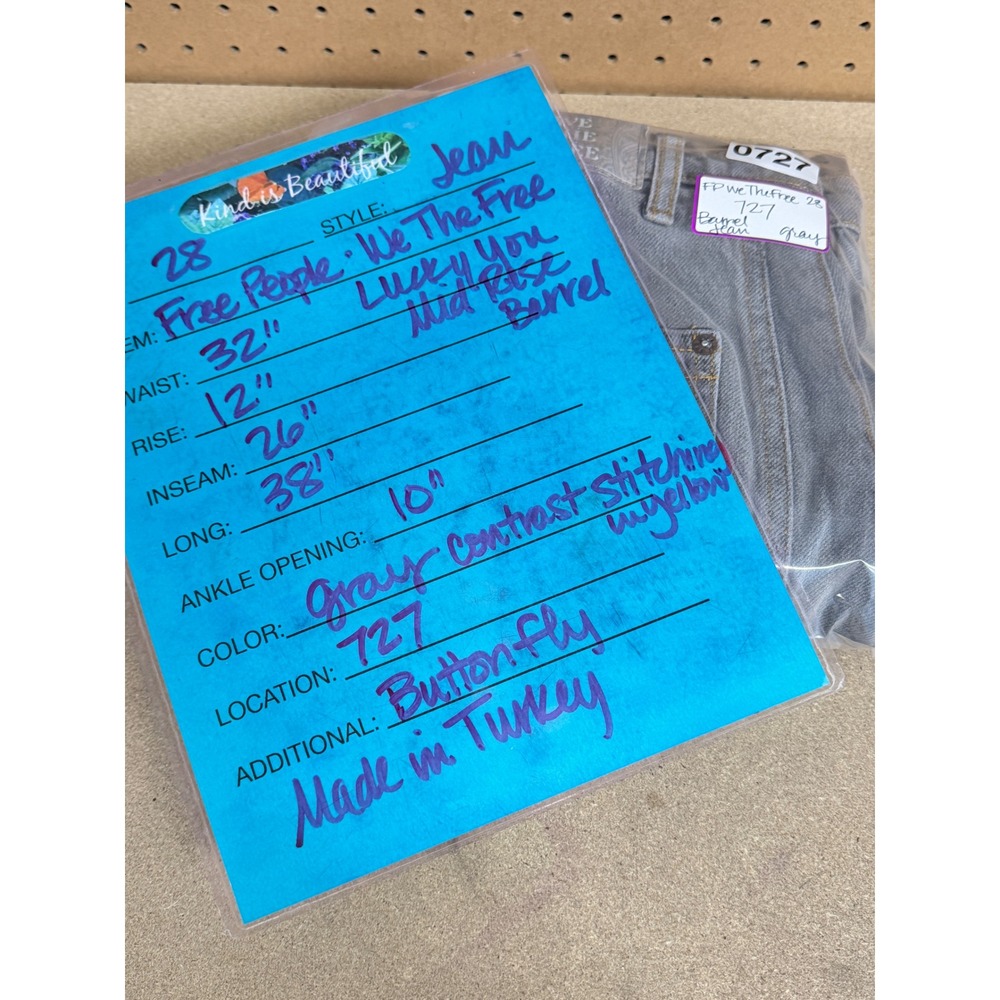 Kind is Beautiful
28 STYLE: Jean
EM: Free People. We The Free
Lucky You
Mid Rise
Barrel
WAIST: 32"
RISE: 12"
INSEAM: 26"
LONG: 38"
ANKLE OPENING: 10"
COLOR: gray contrast stitching
in yellow
LOCATION: 727
ADDITIONAL: Button fly
Made in Turkey
0727
FP We The Free 28
727
Barrel
Jean gray